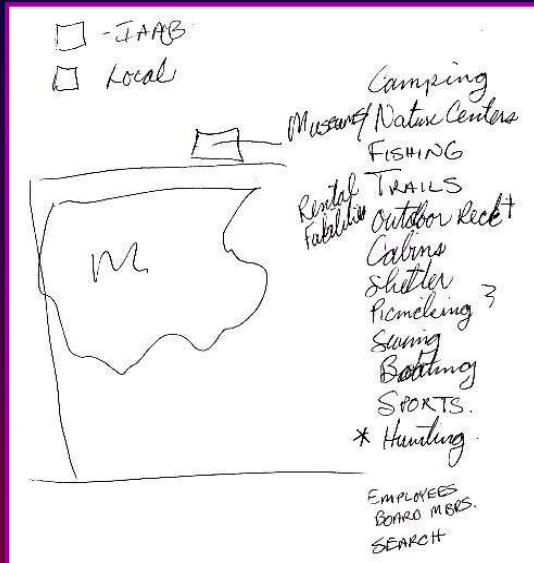 - IAAB
Local
Camping
Museums/ Nature Centers
FISHING
TRAILS
Rental
Outdoor Rec
Cabins
Shelter
Picnicking
Boating
SPORTS.
* Hunting.
EMPLOYEES
BOARD MBRS.
SEARCH